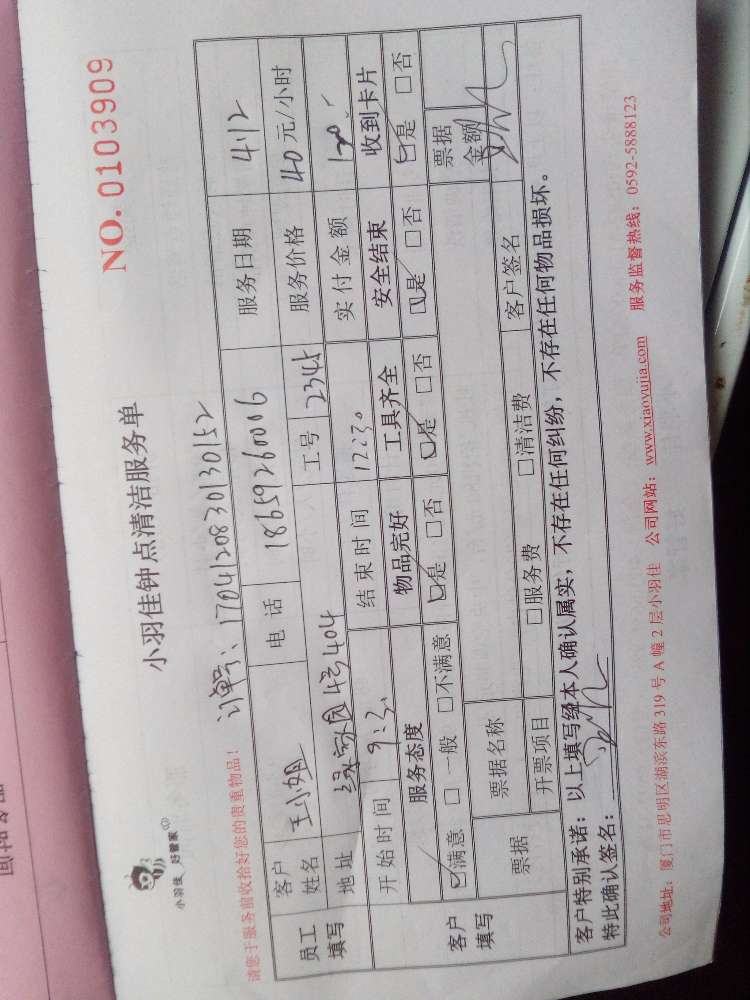 NO. 0103909
小羽佳 好管家
小羽佳钟点清洁服务单
请您于服务前收拾好您的贵重物品！
订单号：170412083013052
员工填写
客户姓名 王小姐 电话 18659260006 服务日期 4.12
地址 绿家园4号404 工号 2345 服务价格 40元/小时
开始时间 9:3. 结束时间 12:30 实付金额
客户填写
服务态度 物品完好 工具齐全 安全结束 收到卡片
☑满意 □一般 □不满意 ☑是 □否 ☑是 □否 ☑是 □否 ☑是 □否
票据 票据名称 票据金额
开票项目 □服务费 □清洁费 客户签名
客户特别承诺：以上填写经本人确认属实，不存在任何纠纷，不存在任何物品损坏。
特此确认签名：
公司地址：厦门市思明区湖滨东路319号A幢2层小羽佳 公司网站：www.xiaoyujia.com 服务监督热线：0592-5888123